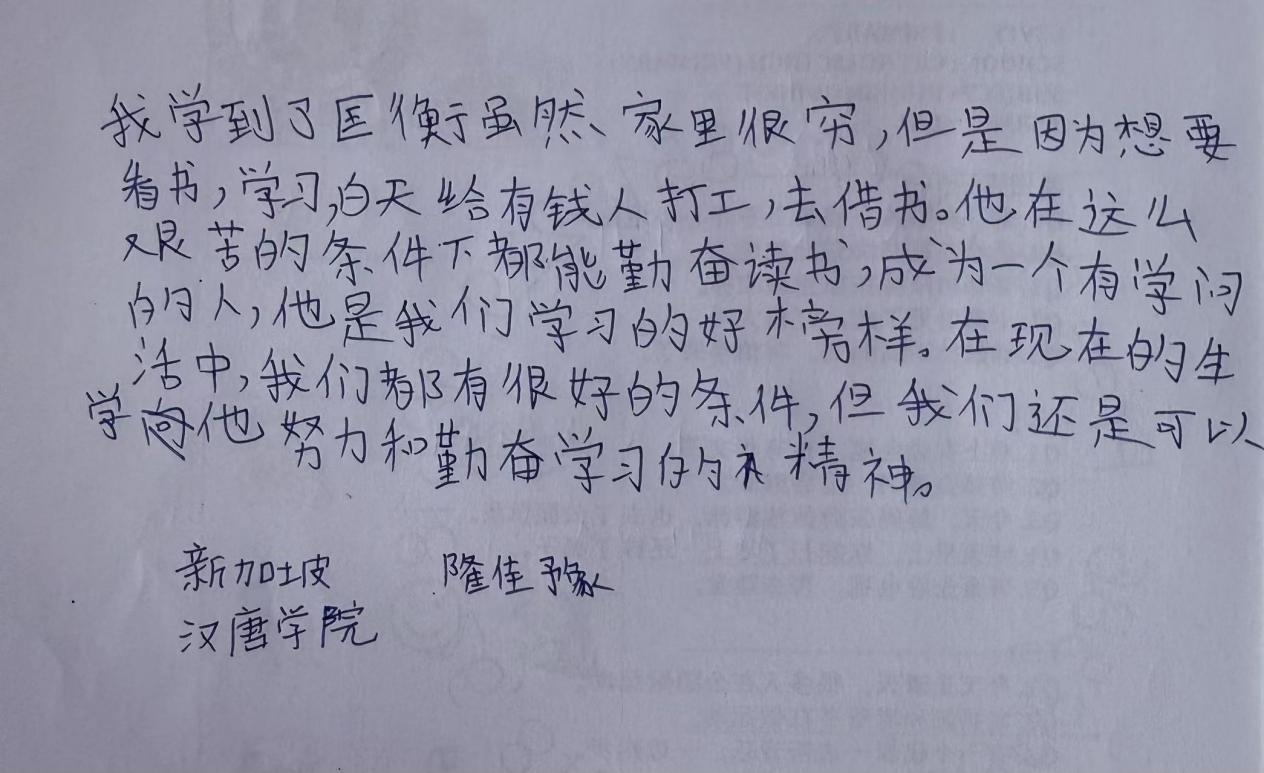 我学到了匡衡虽然家里很穷，但是因为想要
看书，学习，白天给有钱人打工，去借书。他在这么
艰苦的条件下都能勤奋读书，成为一个有学问
的人，他是我们学习的好榜样。在现在的生
活中，我们都有很好的条件，但我们还是可以
学向他努力和勤奋学习的精神。
新加坡 隆佳豫
汉唐学院